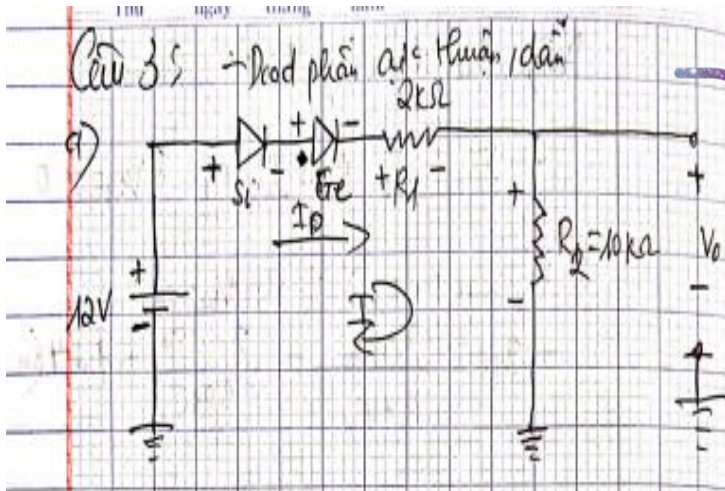 Thứ ngày tháng năm
Câu 3: - Diod phân cực thuận, dẫn
2kΩ
a)
+ - + -
Si Ge + R1 -
I_D
+
12V
-
I
+
R2 = 10kΩ
-
+
V0
-